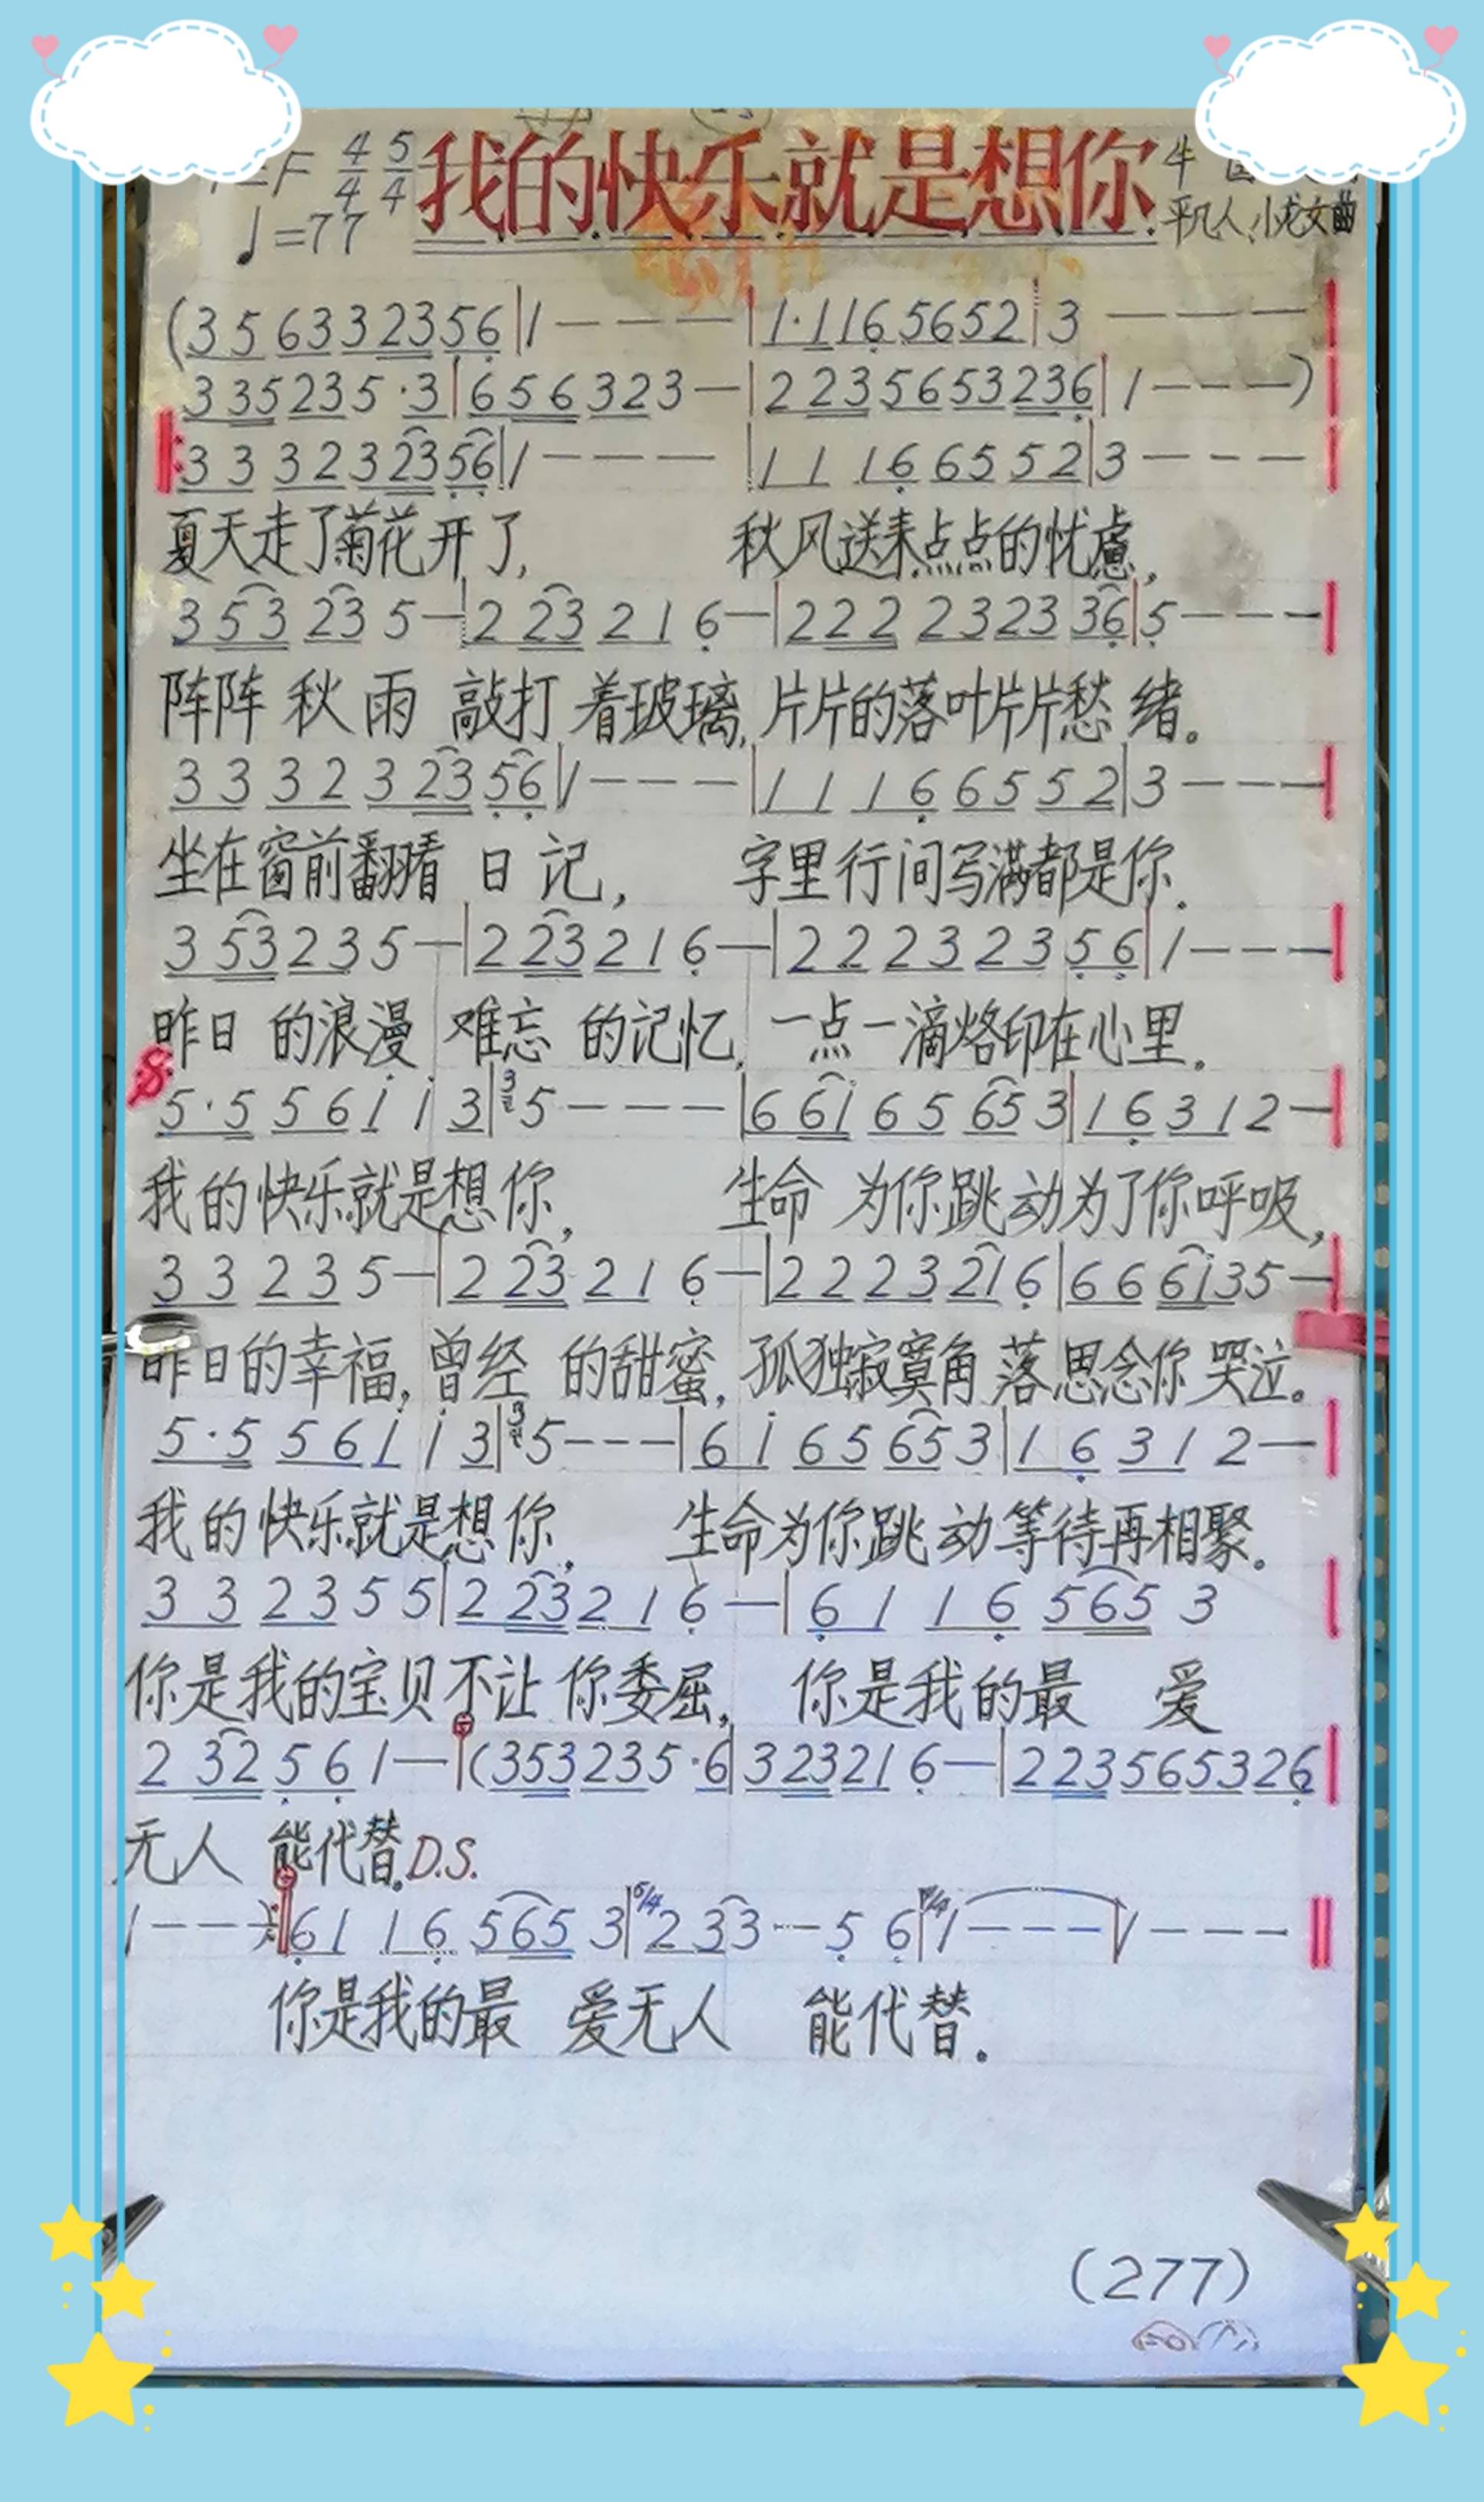 =F 4/4 5/4 我的快乐就是想你
♩=77 平凡人、小龙女曲
(3 5 6 3 3 2 3 5 6 | 1 — — — — | 1·1 1 6 5 6 5 2 | 3 — — — |
3 3 5 2 3 5 ·3 | 6 5 6 3 2 3 — | 2 2 3 5 6 5 3 2 3 6 | 1 — — — ) |
‖: 3 3 3 2 3 2 3 5 6 | 1 — — — — | 1 1 1 6 6 5 5 2 | 3 — — — |
夏天走了菊花开了, 秋风送来点点的忧虑,
3 5 3 2 3 5 — | 2 2 3 2 1 6 — | 2 2 2 2 3 2 3 3 6 | 5 — — — |
阵阵 秋 雨 敲打 着玻璃, 片片的落叶片片愁 绪。
3 3 3 2 3 2 3 5 6 | 1 — — — — | 1 1 1 6 6 5 5 2 | 3 — — — |
坐在窗前翻看 日 记, 字里行间写满都是你.
3 5 3 2 3 5 — | 2 2 3 2 1 6 — | 2 2 2 3 2 3 5 6 | 1 — — — |
昨日 的浪漫 难忘 的记忆, 一点一滴烙印在心里.
5·5 5 6 i i 3 | 3 5 — — — — | 6 6 i 6 5 6 5 3 | 1 6 3 1 2 — |
我的快乐就是想你, 生命 为你跳动为了你呼吸,
3 3 2 3 5 — | 2 2 3 2 1 6 — | 2 2 2 3 2 1 6 | 6 6 6 i 3 5 — |
昨日的幸福, 曾经 的甜蜜, 孤独寂寞角落思念你 哭泣。
5·5 5 6 i i 3 | 3 5 — — — | 6 i 6 5 6 5 3 | 1 6 3 1 2 — |
我的快乐就是想你, 生命为你跳动等待再相聚.
3 3 2 3 5 5 | 2 2 3 2 1 6 — | 6 1 1 6 5 6 5 3 |
你是我的宝贝不让你委屈, 你是我的最 爱
2 3 2 5 6 1 — | (3 5 3 2 3 5 ·6 | 3 2 3 2 1 6 — | 2 2 3 5 6 5 3 2 6 |
无人 能代替. D.S.
1 — — — :‖ 6 1 1 6 5 6 5 3 | 5/4 2 3 3 — 5 6 | 1 — — — | 1 — — — ‖
你是我的最 爱无人 能代替.
(277)